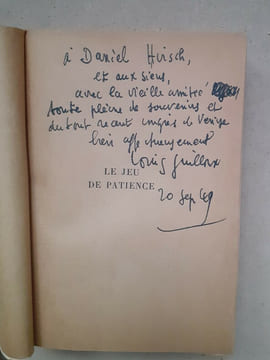 à Daniel Hirsch,
et aux siens,
avec la vieille amitié
toute pleine de souvenirs et
du tout récent congrès de Venise
bien affectueusement
Louis Guilloux
LE JEU
DE PATIENCE
20 Sep 49